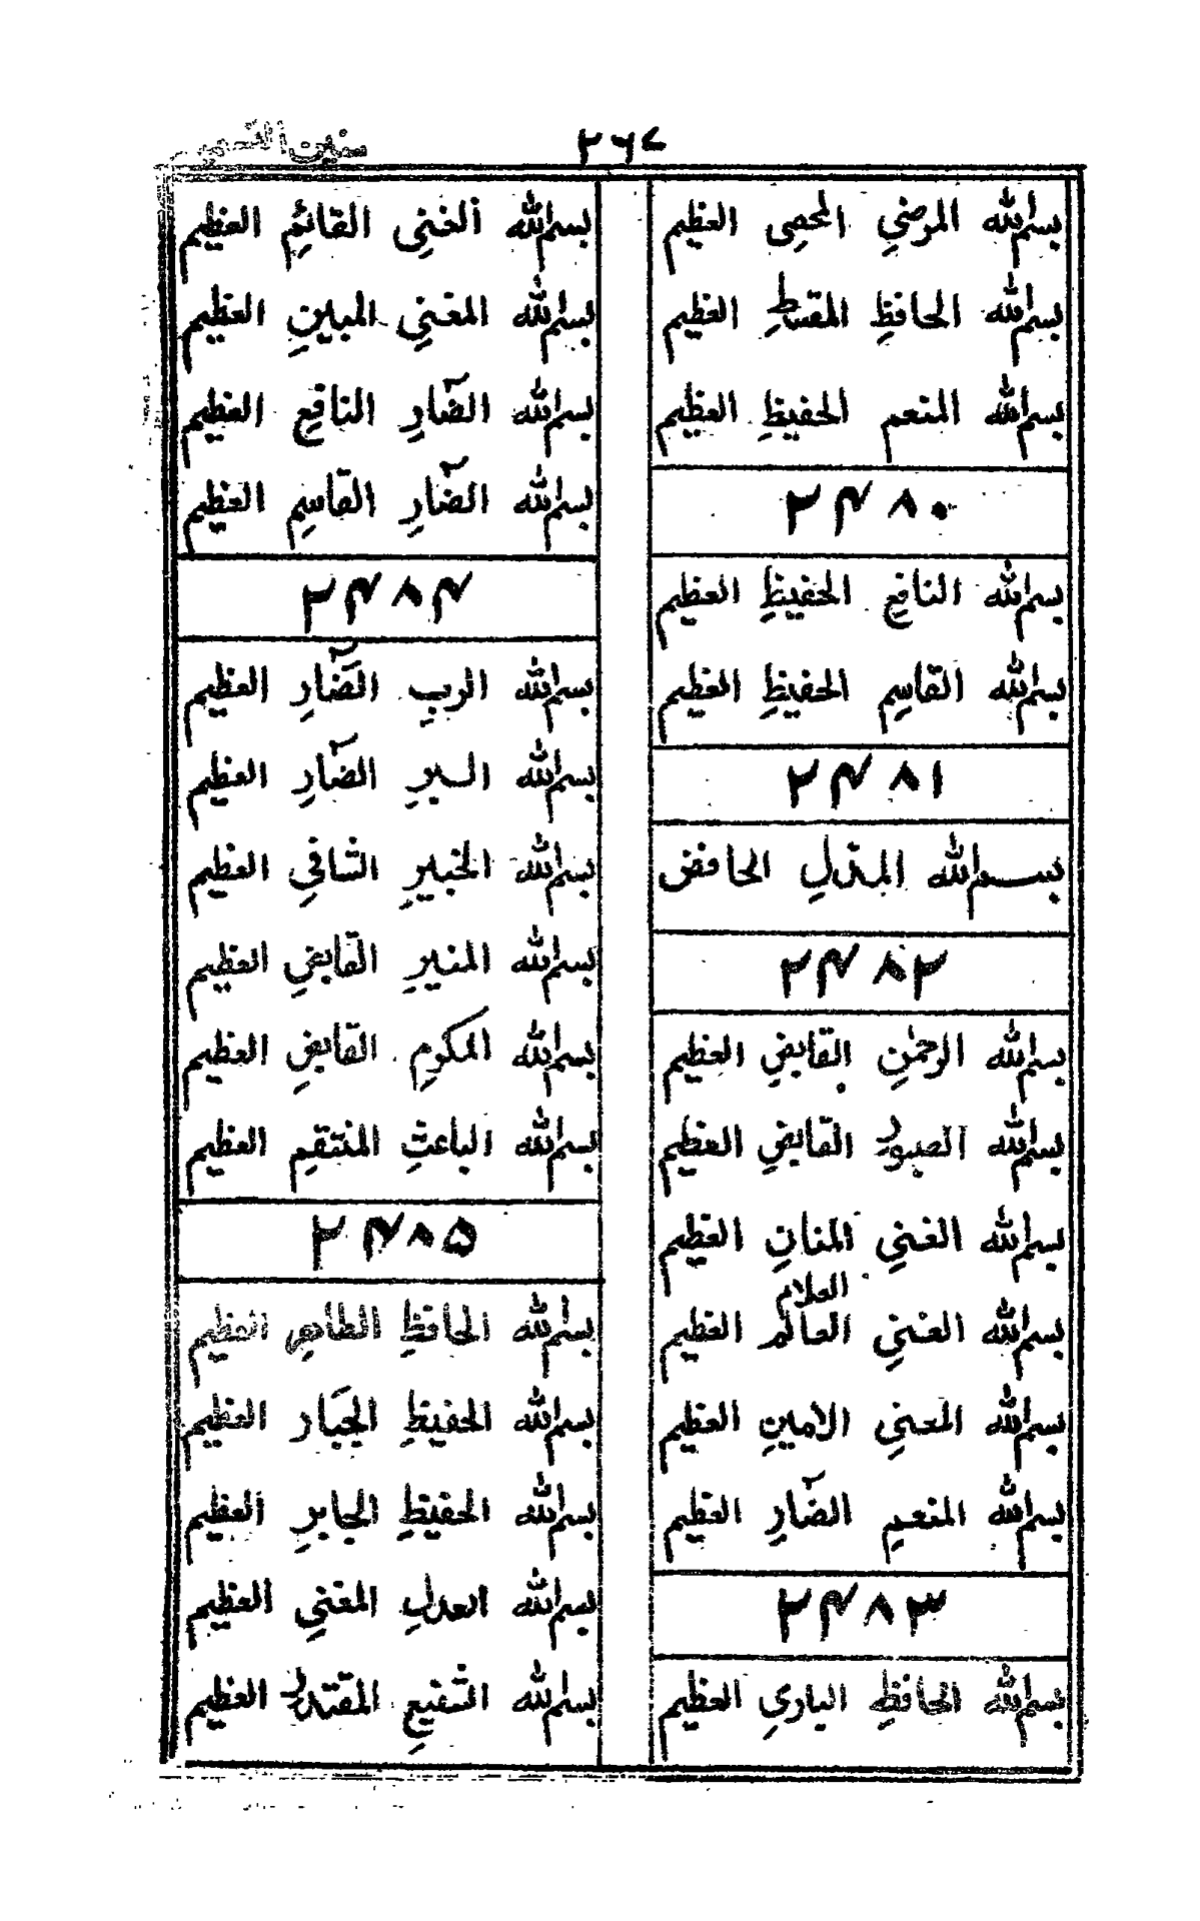 ۲۶۷
سنین
بسم الله المرضیِ المحصی العظیم
بسم الله الحافظِ المقسطِ العظیم
بسم الله المنعم الحفیظِ العظیم
۲۴۸۰
بسم الله النافعِ الحفیظِ العظیم
بسم الله القاسمِ الحفیظِ العظیم
۲۴۸۱
بسم الله المذلِ الحافض
۲۴۸۲
بسم الله الرحمٰنِ القابضِ العظیم
بسم الله الصبور القابضِ العظیم
بسم الله الغنیِ المنانِ العظیم
العلام
بسم الله الغنیِ العالم العظیم
بسم الله المغنیِ الامینِ العظیم
بسم الله المنعمِ الضارِ العظیم
۲۴۸۳
بسم الله الحافظِ الباریِ العظیم
بسم الله الغنیِ القائمِ العظیم
بسم الله المغنیِ المبینِ العظیم
بسم الله الضارِ النافعِ العظیم
بسم الله الضارِ القاسمِ العظیم
۲۴۸۴
بسم الله الربِ الضارِ العظیم
بسم الله السیرِ الضارِ العظیم
بسم الله الخبیرِ الشافیِ العظیم
بسم الله المنیرِ القابضِ العظیم
بسم الله المکرمِ القابضِ العظیم
بسم الله الباعثِ المنتقمِ العظیم
۲۴۸۵
بسم الله الحافظِ الطاهرِ العظیم
بسم الله الحفیظِ الجبار العظیم
بسم الله الحفیظِ الجابرِ العظیم
بسم الله العدلِ المغنیِ العظیم
بسم الله الشفیعِ المقتدر العظیم